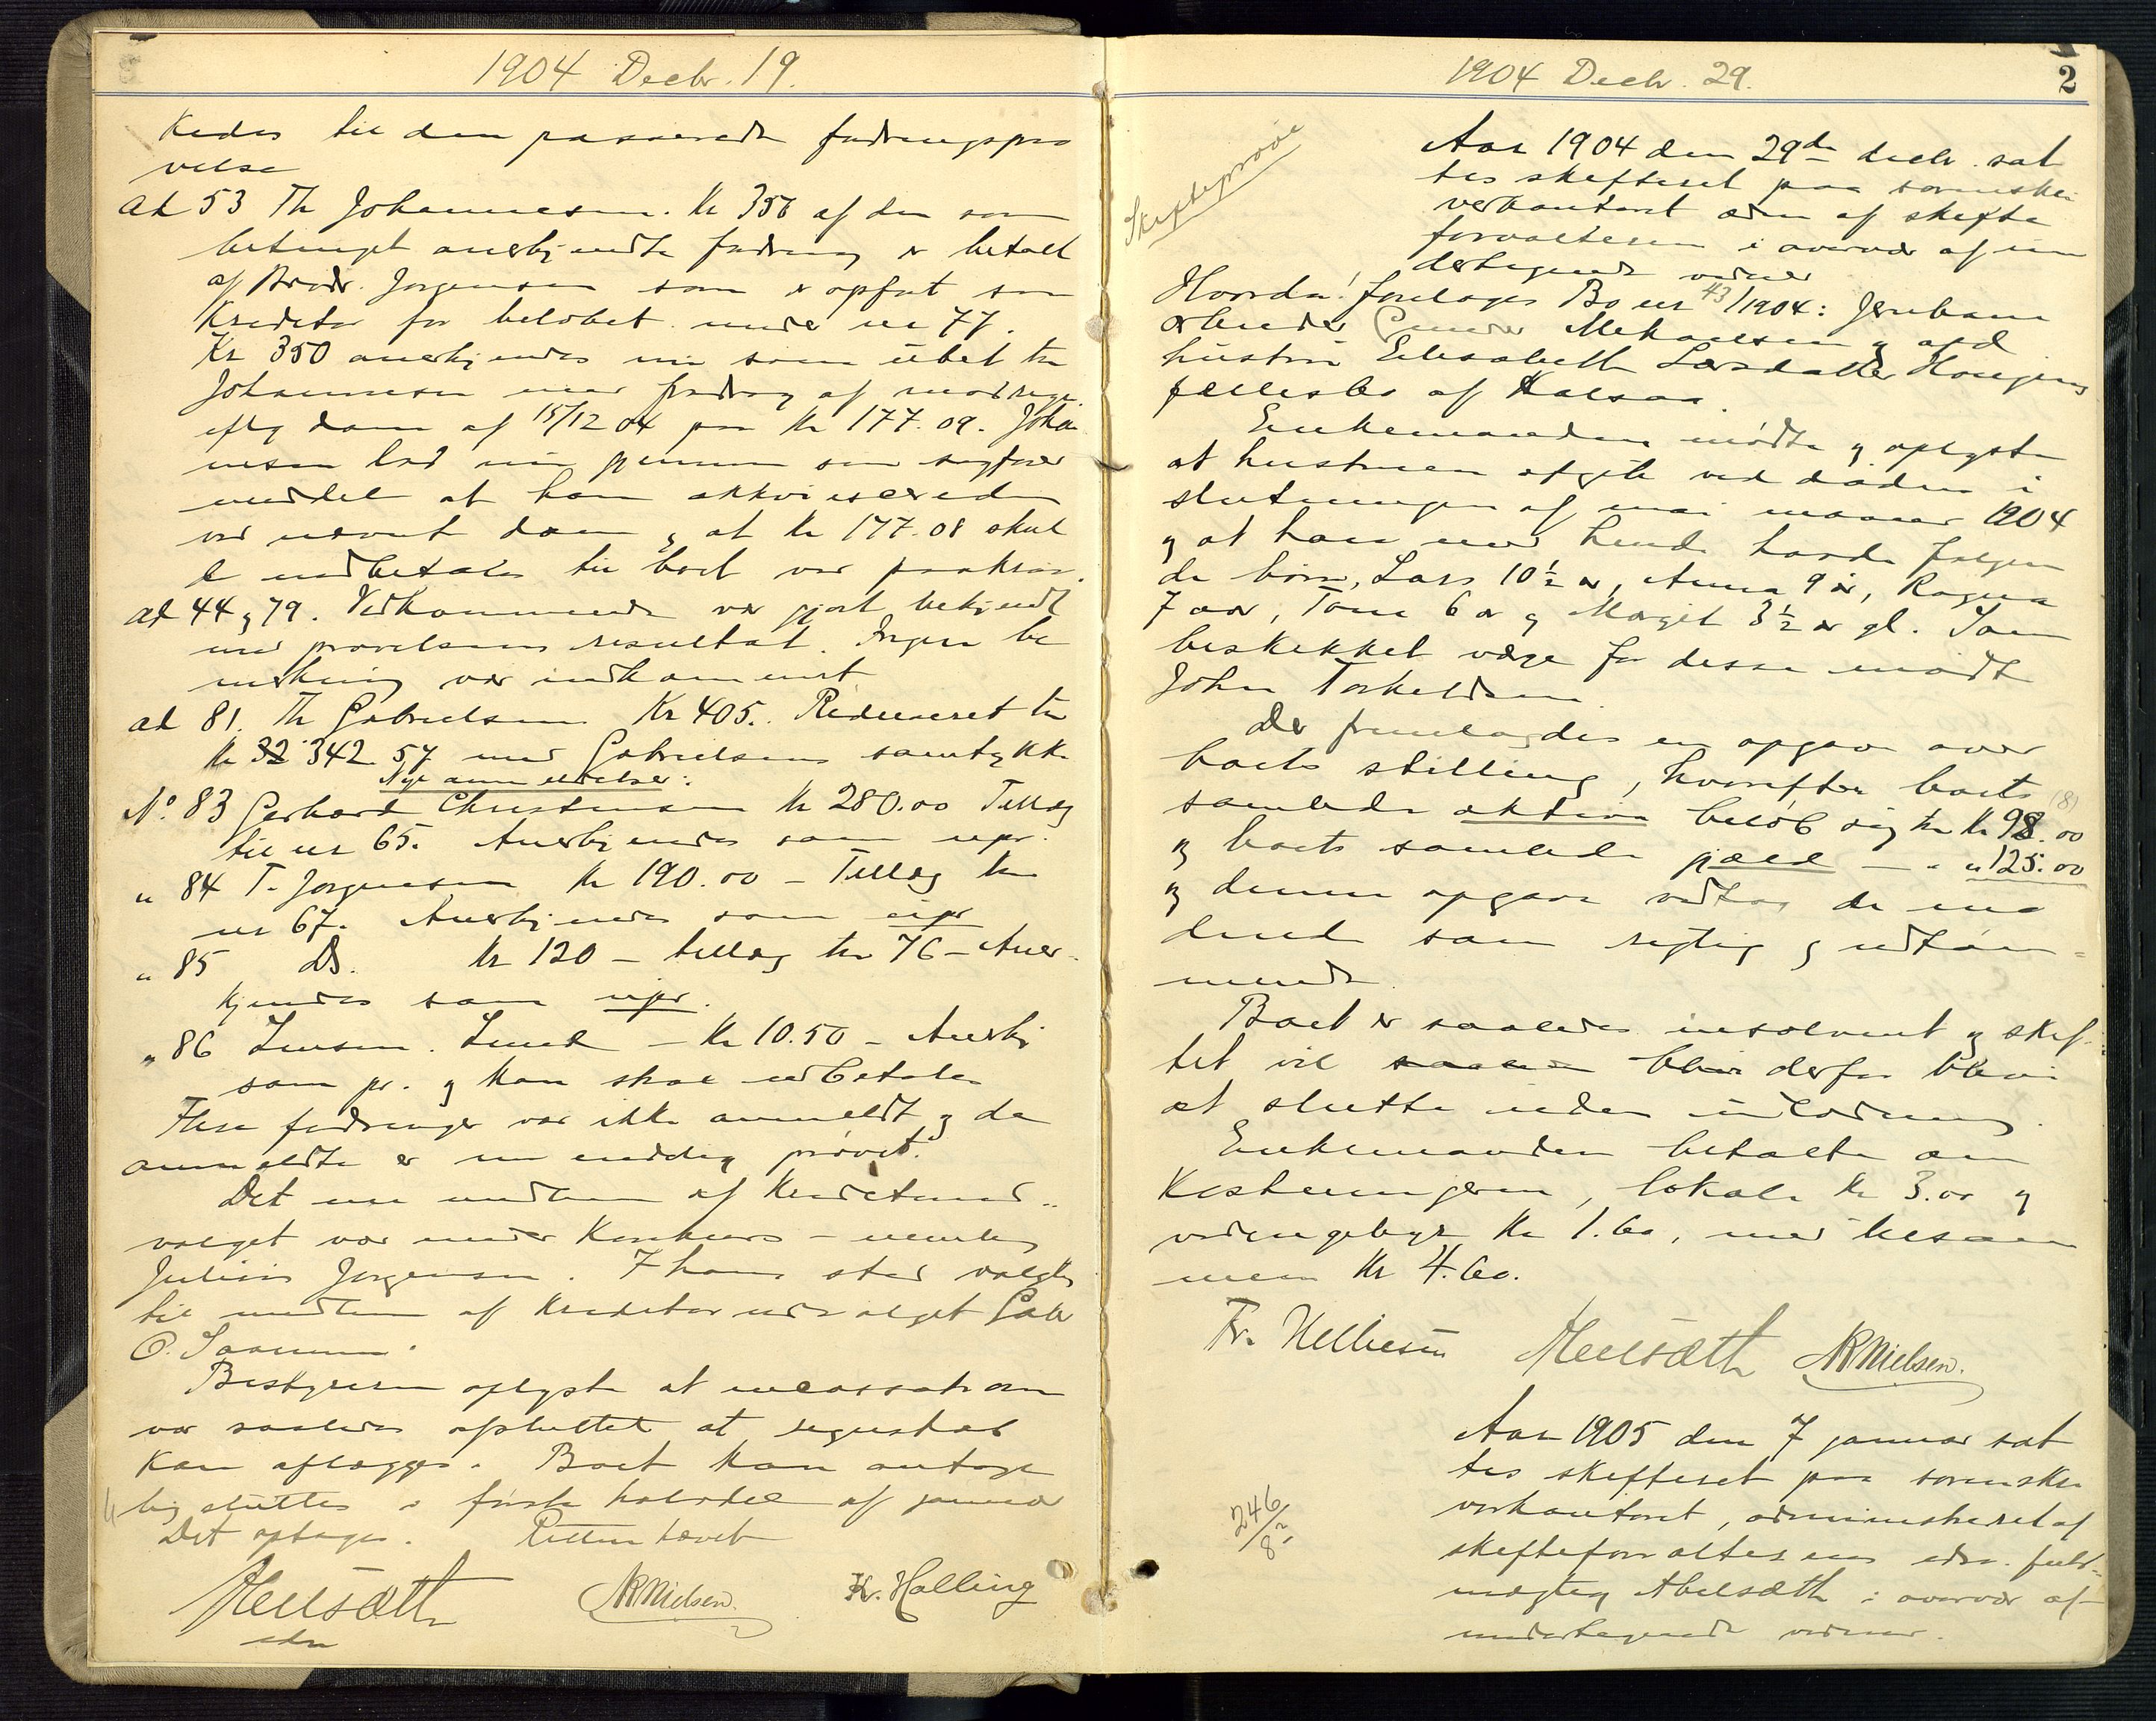 1904 Decbr. 19.
kedes til den passerede fodringsprø
velse
ad 53 Th Johannesen. Kr 350 af den som
betinget anerkjendte fodring er betalt
af Brødr. Jørgensen som er opført som
Kreditor for beløbet under nr 77.
Kr 350 anerkjendes nu som übet til
Johannesen med fradrag af
dom af 15/12 04 paa Kr 177.09. Johan
nesen lod nu gjennem sin sagfører
meddele at han akkviescerede
ved nævnt dom og at Kr 177.08 skul
de indbetales til boet ved paakrav.
ad 44 og 79. Vedkommende var gjort bekjendt
med prøvelsens resultat. Ingen be
mærkning var indkommet
ad 81. Th Gabrielsen Kr 405. Reduceret til
Kr 32 342.57 med Gabrielsens samtykke
Nye anmeldelser:
No. 83 Gerhard Christensen Kr 280.00 Tillæg
til nr 65. Anerkjendes som upr.
" 84 T. Jørgensen Kr 190.00 - Tillæg til
nr 67. Anerkjendes som upr
" 85 Ds. Kr 120 - tillæg til 76 - Aner-
kjendes som upr.
" 86 Lensm. Lund - Kr 10.50 - Anerkj
som pr. og kan strax udbetales
Flere fodringer var ikke anmeldt og de
anmeldte er nu endelig prøvet.
Det ene medlem af Kreditorud-
valget var under Konkurs - nemlig
Julius Jørgensen. I hans sted valgtes
til medlem af Kreditorudvalget Gabr
O. Saanum.
Bestyreren oplyste at incassationen
var saaledes afsluttet at regnskab
kan aflægges. Boet kan antage
lig sluttes i første halvdel af januar
Det optages. Retten hævet
Abelsæth NRNielsen. Kr. Halling
edsv
1904 Decbr. 29.
2
Skifteprøve
Aar 1904 den 29de decbr. sat
tes skifteret paa sorenskri
verkontoret adm af skifte
forvalteren i overvær af un
dertegnede vidner
Hvorda! foretages Bo nr 43/1904: Jernbane
arbeider Gunder Mekaelsen og afd
hustru Elisabeth Larsdatter Haugens
fællesbo af Kalsaa.
Enkemanden mødte og oplyste
at hustruen afgik ved døden i
slutningen af mai maaned 1904
og at han med hende havde følgen
de børn, Lars 10½ ar, Anna 9 år, Ragna
7 aar, Tome 6 ar og Margit 3½ ar gl. Som
beskikket værge for disse mødte
John Torkeldsen.
Der fremlagdes en opgave over
boets stilling, hvorefter boets
samlede aktiva beløb sig til Kr 98.00 (8)
og boets samlede gjæld - " " 125.00
og denne opgave vedtog de mø
dende som rigtig og udtøm=
mende.
Boet er saaledes insolvent og skif-
tet vil saaledes blir derfor blive
at slutte uden udlodning.
Enkemanden betalte om
kostningerne, lokale Kr 3.00 og
vidnegebyr Kr 1.60, med tilsam
men Kr 4.60.
Fr. Helliesen Abelsæth NRNielsen.
Aar 1905 den 7 januar sat
tes skifteret paa sorenskri
verkontoret, administreret af
skifteforvalterens edsv. fuld-
mægtig Abelsæth i overvær af
undertegnede vidner.
246/8²